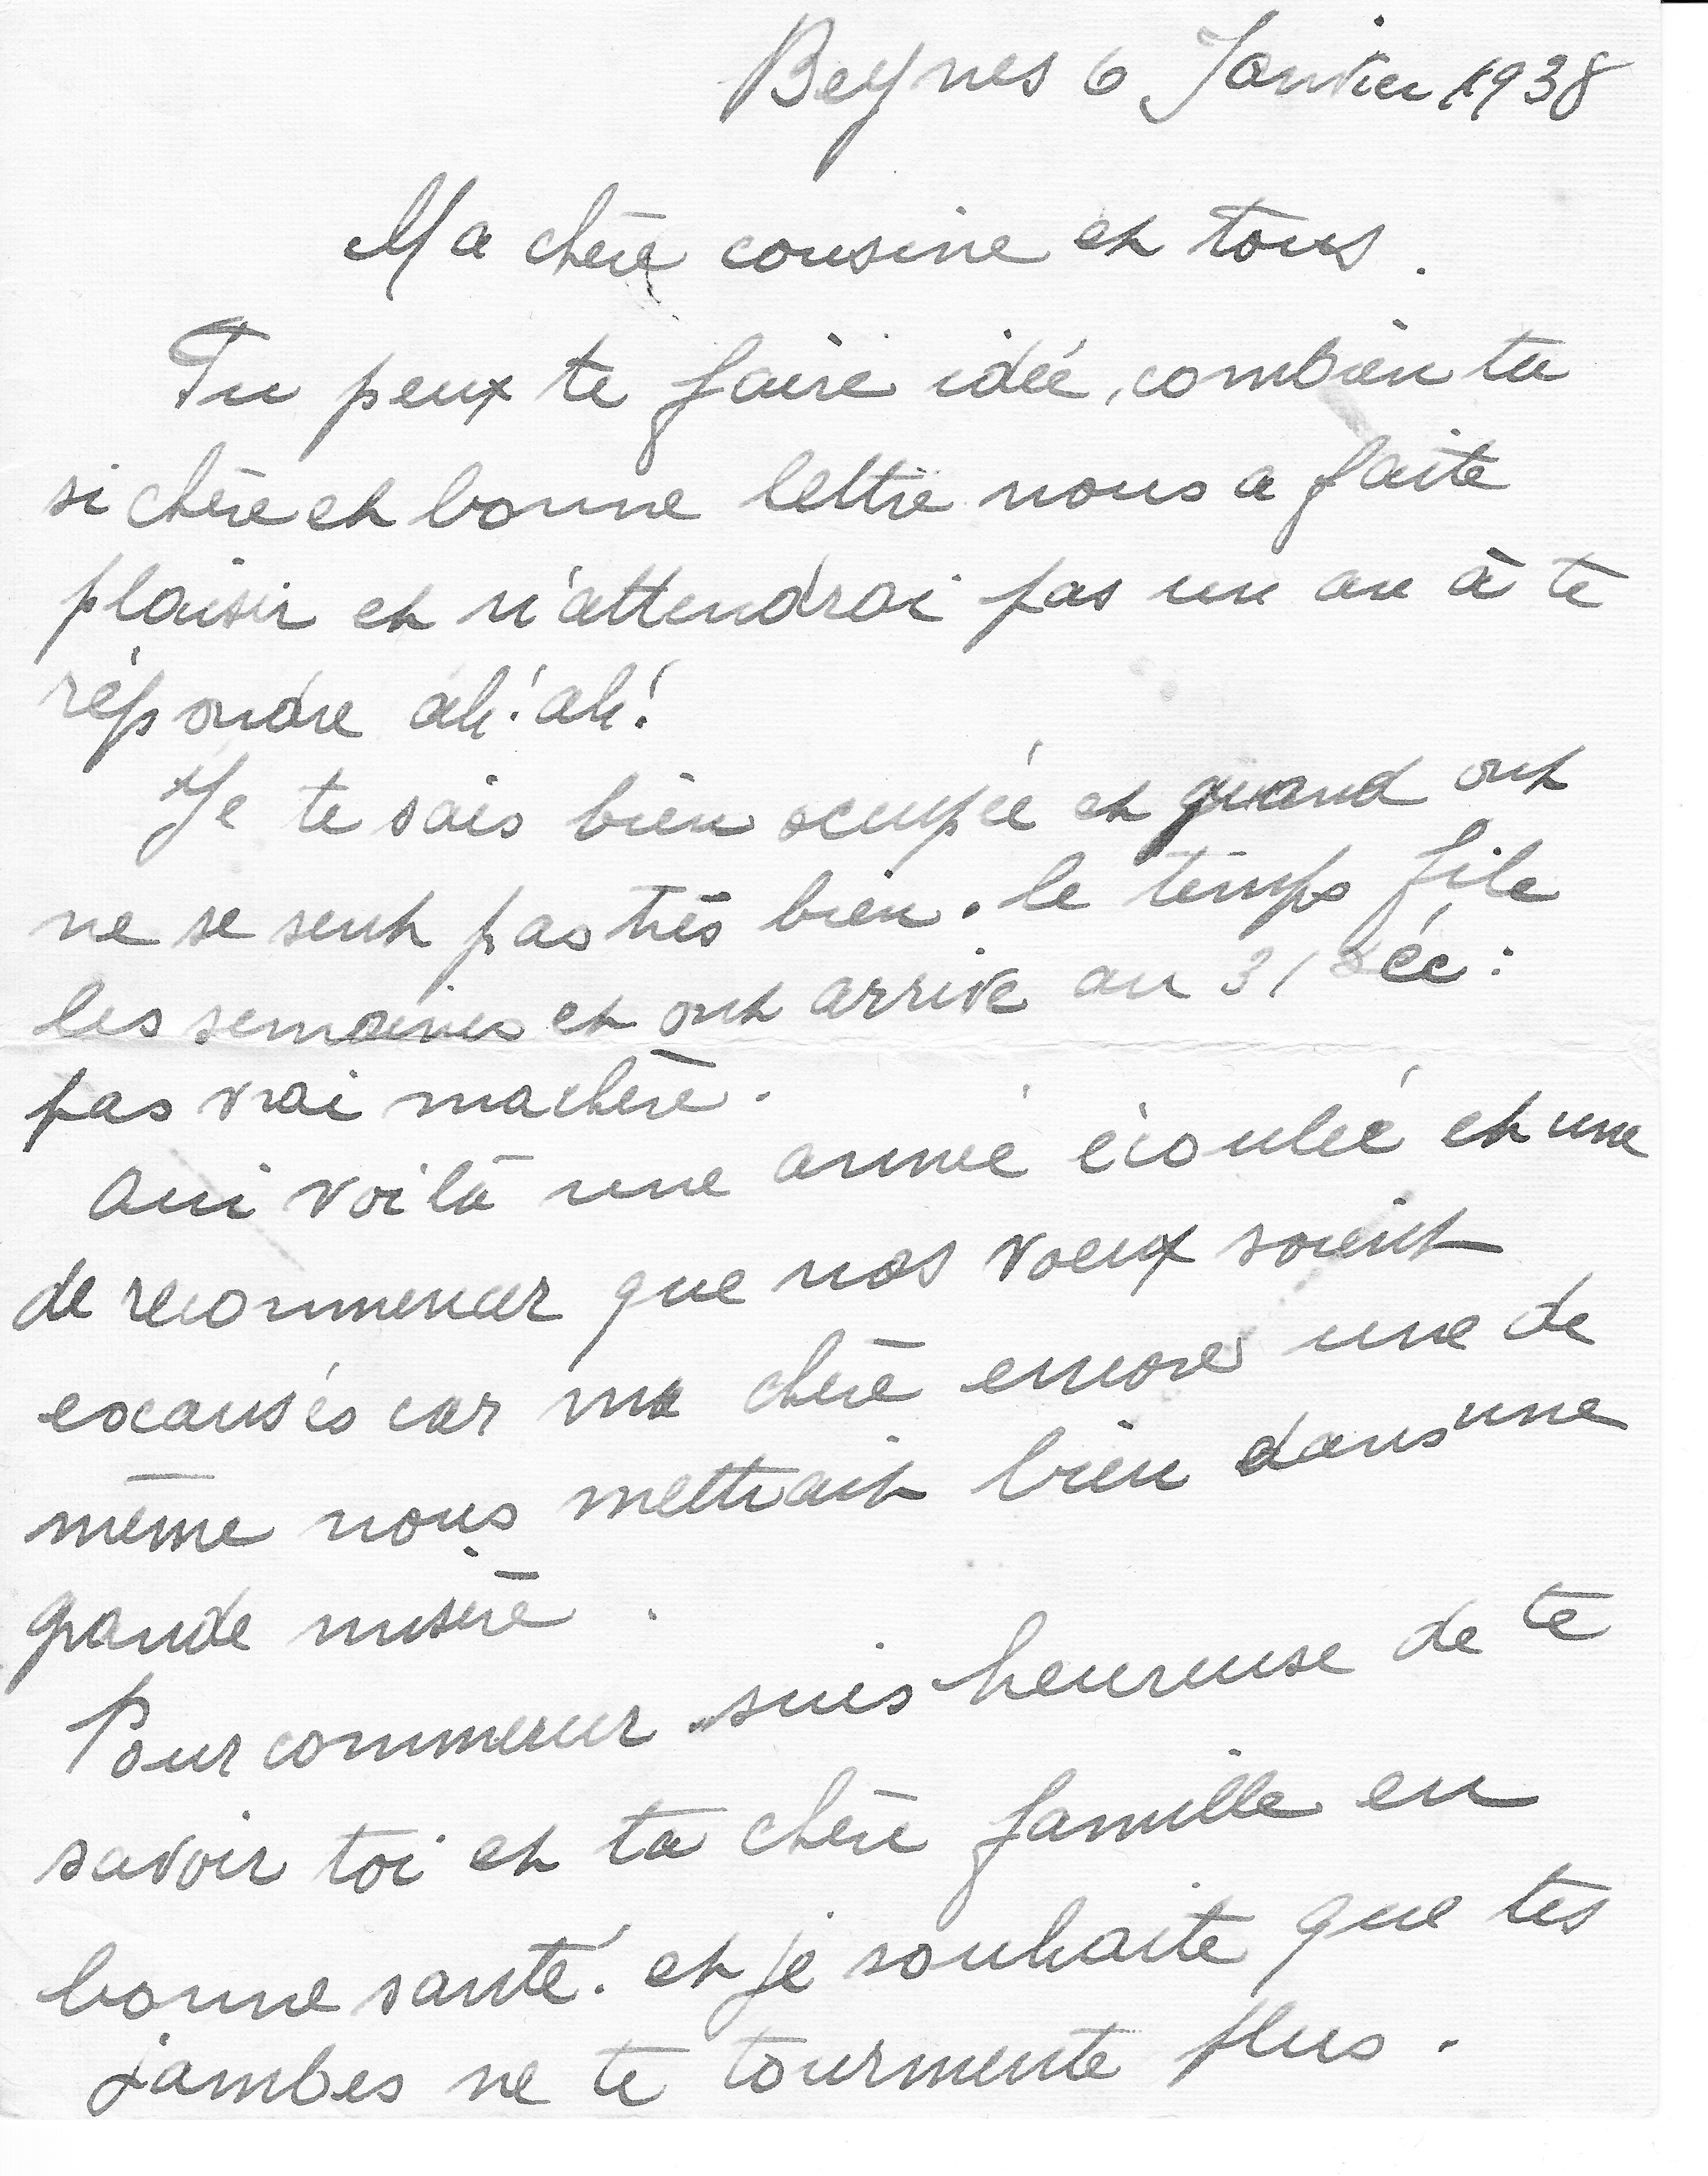 Beynes 6 Janvier 1938
Ma chère cousine et tous.
Tu peux te faire idée, combien ta
si chère et bonne lettre nous a faite
plaisir et n'attendrai pas un an à te
répondre ah! ah!
Je te sais bien ocupée et quand ont
ne se sent pas très bien. le temps file
les semaines et ont arrive au 31 Déc:
pas vrai ma chère.
Oui voilà une année écoulée et une
de recommencer que nos voeux soient
excausés car ma chère encore une de
même nous mettrait bien dans une
grande misère.
Pour commencer suis heureuse de te
savoir toi et ta chère famille en
bonne santé. et je souhaite que tes
jambes ne te tourmente plus.